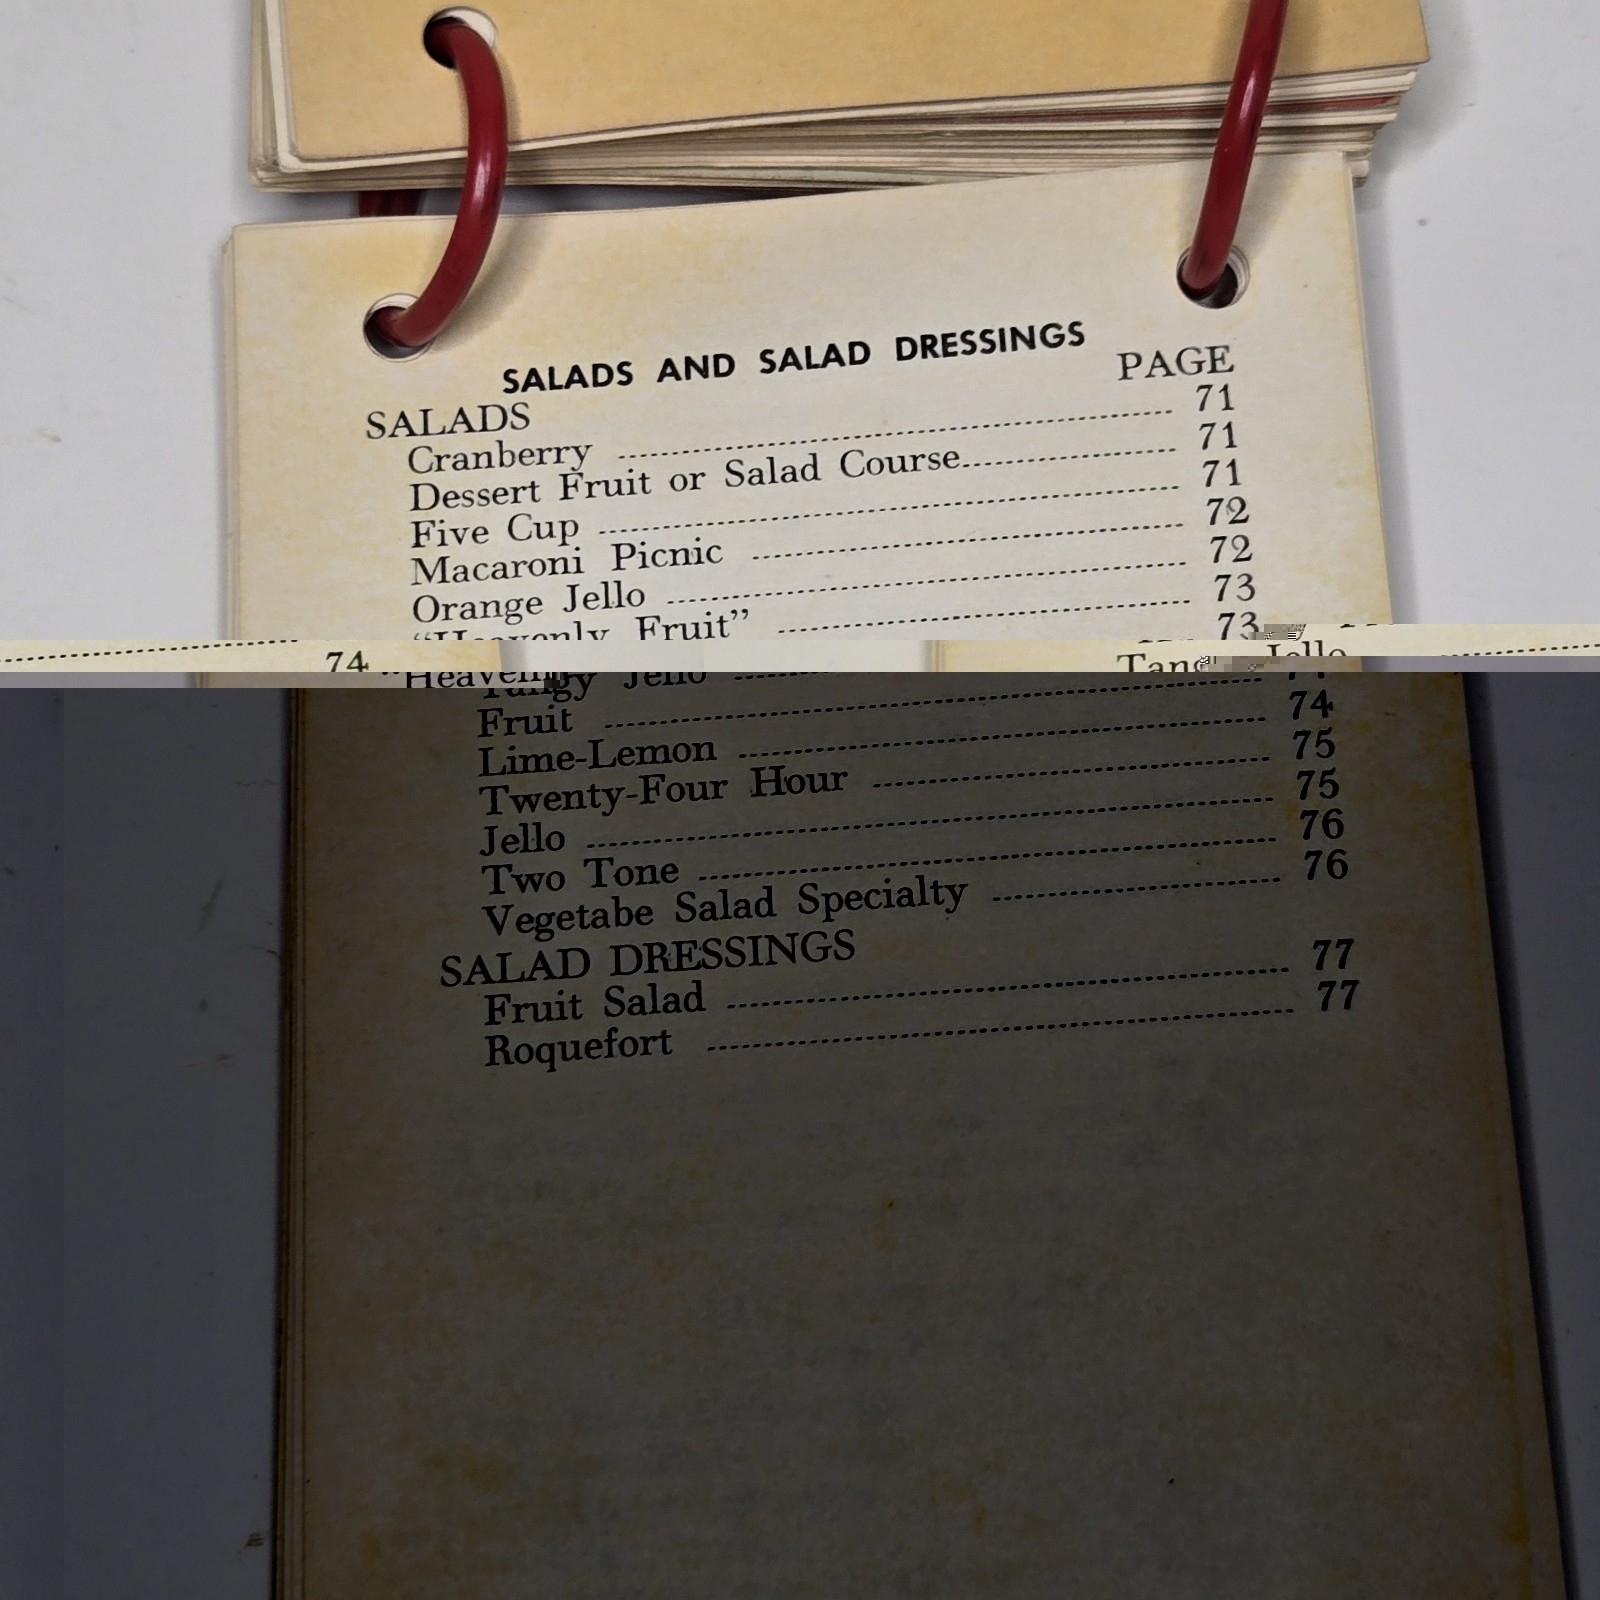 SALADS AND SALAD DRESSINGS
PAGE
SALADS
Cranberry 71
Dessert Fruit or Salad Course 71
Five Cup 71
Macaroni Picnic 72
Orange Jello 72
“Heavenly Fruit” 73
73
74
Tangy Jello
Fruit
Lime-Lemon 74
Twenty-Four Hour 75
Jello 75
Two Tone 76
Vegetabe Salad Specialty 76
SALAD DRESSINGS
Fruit Salad 77
Roquefort 77